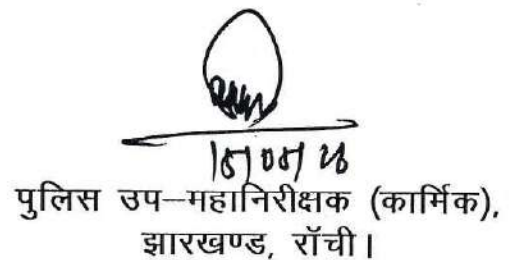 पुलिस उप–महानिरीक्षक (कार्मिक),
झारखण्ड, रॉची।